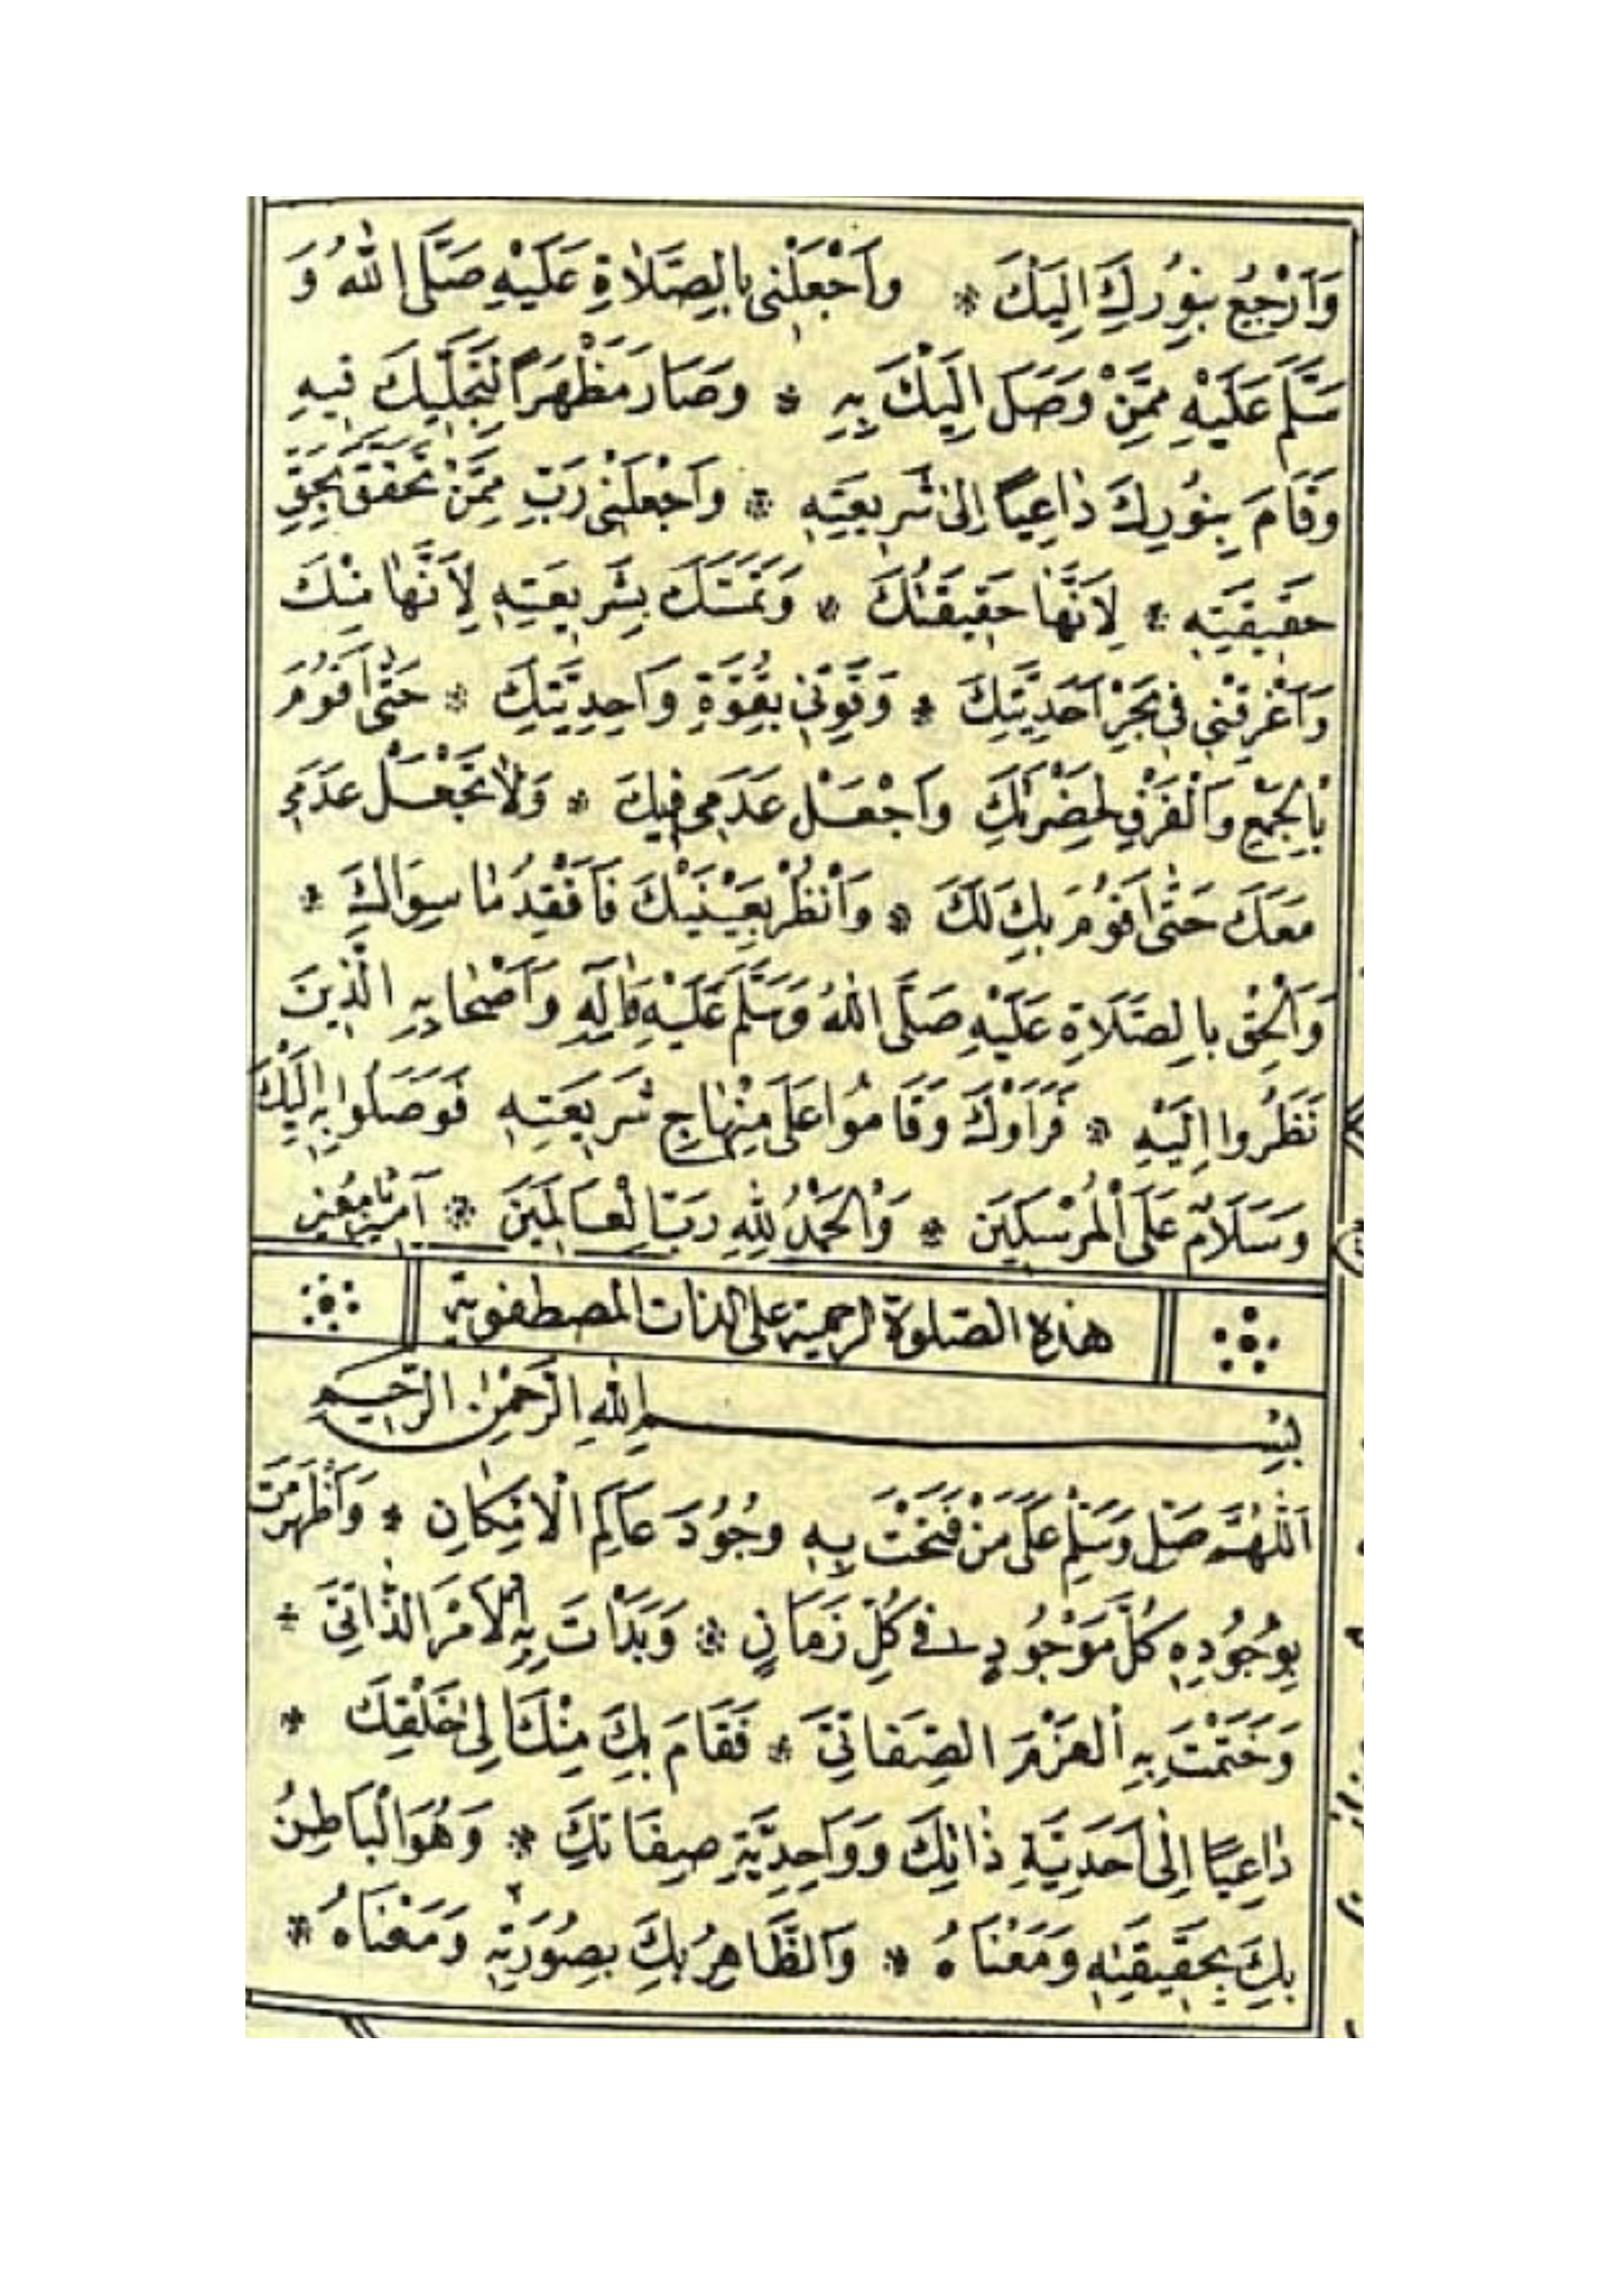 وَاَرْجِعُ بِنُورِكَ اِلَيْكَ * وَاَجْعَلْنِى بِالصَّلَاةِ عَلَيْهِ صَلَّى اللهُ وَ
سَلَّمَ عَلَيْهِ مِمَّنْ وَصَلَ اِلَيْكَ بِهِ * وَصَارَ مَظْهَرًا لِتَجَلِّيكَ فِيهِ
وَقَامَ بِنُورِكَ دَاعِيًا اِلىٰ شَرِيعَتِهِ * وَاَجْعَلْنِى رَبِّ مِمَّنْ تَحَقَّقَ بِحَقِّ
حَقِيقَتِهِ * لِاَنَّهَا حَقِيقَتُكَ * وَتَمَسَّكَ بِشَرِيعَتِهِ لِاَنَّهَا مِنْكَ
وَاَغْرِقْنِى فِى بَحْرِ اَحَدِيَّتِكَ * وَقَوِّنِى بِقُوَّةِ وَاحِدِيَّتِكَ * حَتّٰى اَقُومَ
بِالْجَمْعِ وَالْفَرْقِ لِحَضْرَتِكَ وَاَجْعَلْ عَدَمِى فِيكَ * وَلَا تَجْعَلْ عَدَمِى
مَعَكَ حَتّٰى اَقُومَ بِكَ لَكَ * وَاَنْظُرْ بِعَيْنَيْكَ فَاَفْقِدُ مَا سِوَاكَ *
وَاَلْحِقْنِى بِالصَّلَاةِ عَلَيْهِ صَلَّى اللهُ وَسَلَّمَ عَلَيْهِ وَاٰلِهِ وَاَصْحَابِهِ الَّذِينَ
نَظَرُوا اِلَيْهِ * فَرَاَوْكَ وَقَامُوا عَلَى مِنْهَاجِ شَرِيعَتِهِ فَوَصَلُوا بِهِ اِلَيْكَ
وَسَلَامٌ عَلَى الْمُرْسَلِينَ * وَالْحَمْدُ لِلّٰهِ رَبِّ الْعَالَمِينَ * آمِينَ يَا مُعِينُ
هذه الصلوة الرحمية على الذات المصطفوية
بِسْمِ اللهِ الرَّحْمٰنِ الرَّحِيمِ
اَللّٰهُمَّ صَلِّ وَسَلِّمْ عَلَى مَنْ فَتَحْتَ بِهِ وُجُودَ عَالَمِ الْاِمْكَانِ * وَاَظْهَرْتَ
بِوُجُودِهِ كُلَّ مَوْجُودٍ فِى كُلِّ زَمَانٍ * وَبَدَاْتَ بِهِ الْاَمْرَ الذَّاتِىَّ *
وَخَتَمْتَ بِهِ الْعَزْمَ الصِّفَاتِىَّ * فَقَامَ بِكَ مِنْكَ اِلىٰ خَلْقِكَ *
دَاعِيًا اِلىٰ اَحَدِيَّةِ ذَاتِكَ وَوَاحِدِيَّةِ صِفَاتِكَ * وَهُوَ الْبَاطِنُ
بِكَ بِحَقِيقَتِهِ وَمَعْنَاهُ * وَالظَّاهِرُ بِكَ بِصُورَتِهِ وَمَعْنَاهُ *